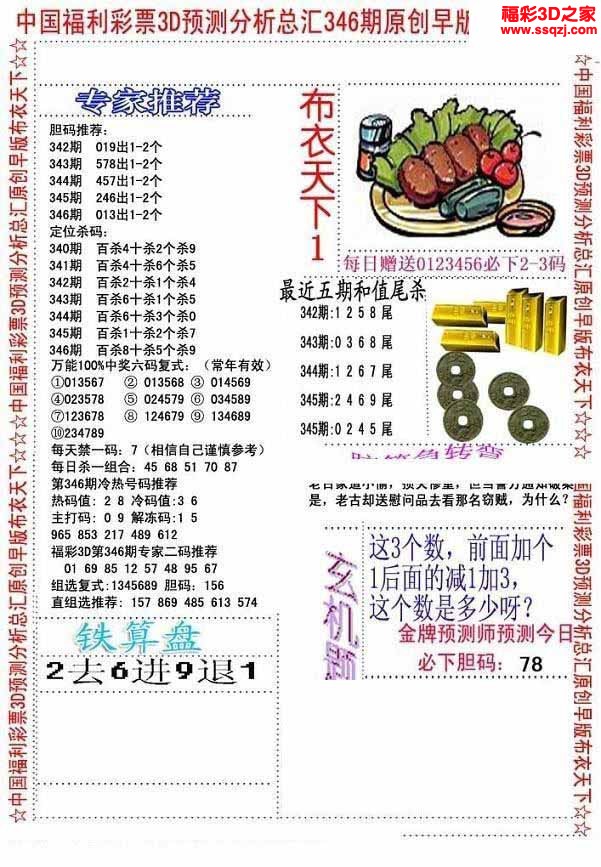 中国福利彩票3D预测分析总汇346期原创早版
福彩3D之家
www.ssqzj.com
☆中国福利彩票3D预测分析总汇原创早版布衣天下☆☆☆中国福利彩票3D预测分析总汇原创早版布衣天下☆☆
专家推荐
胆码推荐:
342期 019出1-2个
343期 578出1-2个
344期 457出1-2个
345期 246出1-2个
346期 013出1-2个
定位杀码:
340期 百杀4十杀2个杀9
341期 百杀4十杀6个杀5
342期 百杀2十杀1个杀4
343期 百杀6十杀1个杀5
344期 百杀6十杀3个杀0
345期 百杀1十杀2个杀7
346期 百杀8十杀5个杀9
万能100%中奖六码复式:(常年有效)
①013567 ② 013568 ③ 014569
④023578 ⑤ 024579 ⑥ 034589
⑦123678 ⑧ 124679 ⑨ 134689
⑩234789
每天禁一码: 7 (相信自己谨慎参考)
每日杀一组合: 45 68 51 70 87
第346期冷热号码推荐
热码值: 2 8 冷码值:3 6
主打码: 0 9 解冻码:1 5
965 853 217 489 612
福彩3D第346期专家二码推荐
01 69 85 12 57 48 95 67
组选复式:1345689 胆码: 156
直组选推荐: 157 869 485 613 574
铁算盘
2去6进9退1
布衣天下1
每日赠送0123456必下2-3码
最近五期和值尾杀
342期:1 2 5 8 尾
343期:0 3 6 8 尾
344期:1 2 6 7 尾
345期:2 4 6 9 尾
345期:0 2 4 5 尾
是, 老古却送慰问品去看那名窃贼, 为什么?
这3个数, 前面加个
1后面的减1加3,
这个数是多少呀?
金牌预测师预测今日
必下胆码: 78
☆中国福利彩票3D预测分析总汇原创早版布衣天下☆☆☆
中国福利彩票3D预测分析总汇原创早版布衣天下☆